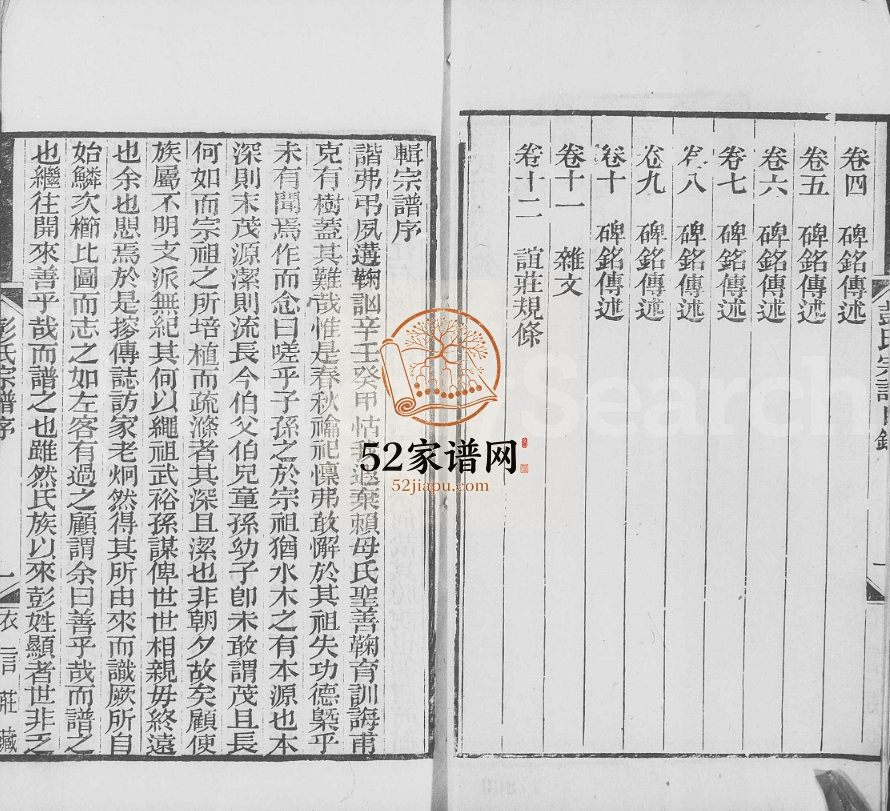 卷四 碑銘傳述
卷五 碑銘傳述
卷六 碑銘傳述
卷七 碑銘傳述
卷八 碑銘傳述
卷九 碑銘傳述
卷十 碑銘傳述
卷十一 雜文
卷十二 誼莊規條
彭氏宗譜目錄
一
輯宗譜序
諧弗弔夙遘鞠訩辛壬癸甲怙我遐棄賴母氏聖善鞠育訓誨甫
克有樹蓋其難哉惟是春秋禴祀懍弗敢懈於其祖失功德槩乎
未有聞焉作而念曰嗟乎子孫之於宗祖猶水木之有本源也本
深則末茂源潔則流長今伯父伯兄童孫幼子卽未敢謂茂且長
何如而宗祖之所培植而疏滌者其深且潔也非朝夕故矣顧使
族屬不明支派無紀其何以繩祖武裕孫謀俾世世相親毋終遠
也余也恧焉於是摉傳誌訪家老炯然得其所由來而識厥所自
始鱗次櫛比圖而志之如左客有過之顧謂余曰善乎哉而譜之
也繼往開來善乎哉而譜之也雖然氏族以來彭姓顯者世非乏
彭氏宗譜序
一
衣言莊藏
52家谱网
52jiapu.com
Search